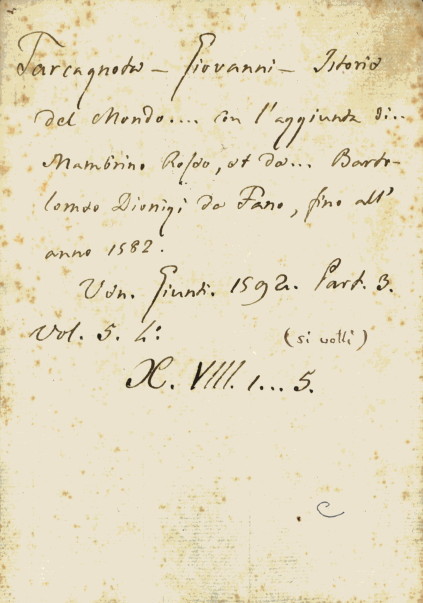 Tarcagnota – Giovanni – Istoria
del Mondo.... con l'aggiunta di..
Mambrino Roseo, et da... Barto-
lomeo Dionigi da Fano, fino all'
anno 1582.
Ven. Giunti. 1592. Part. 3.
Vol. 5. 4°: (si volti)
X. VIII. 1... 5.
C